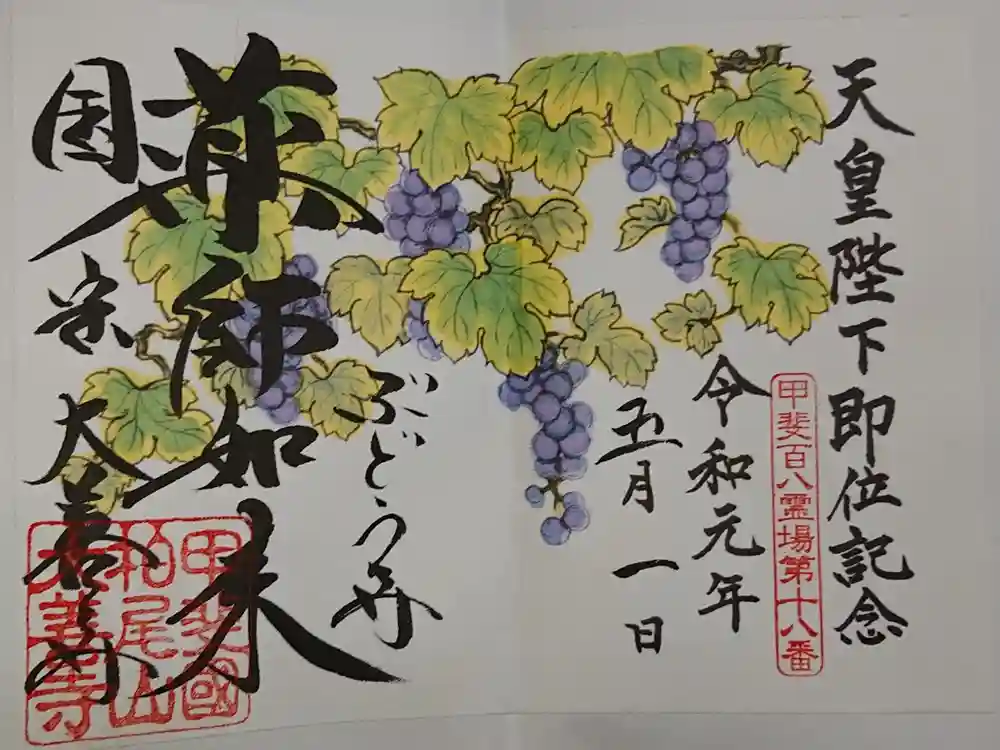 天皇陛下即位記念
甲斐百八霊場第十八番
令和元年
五月一日
ぶどう寺
薬師如来
国宝 大善寺
甲斐國
柏尾山
大善寺